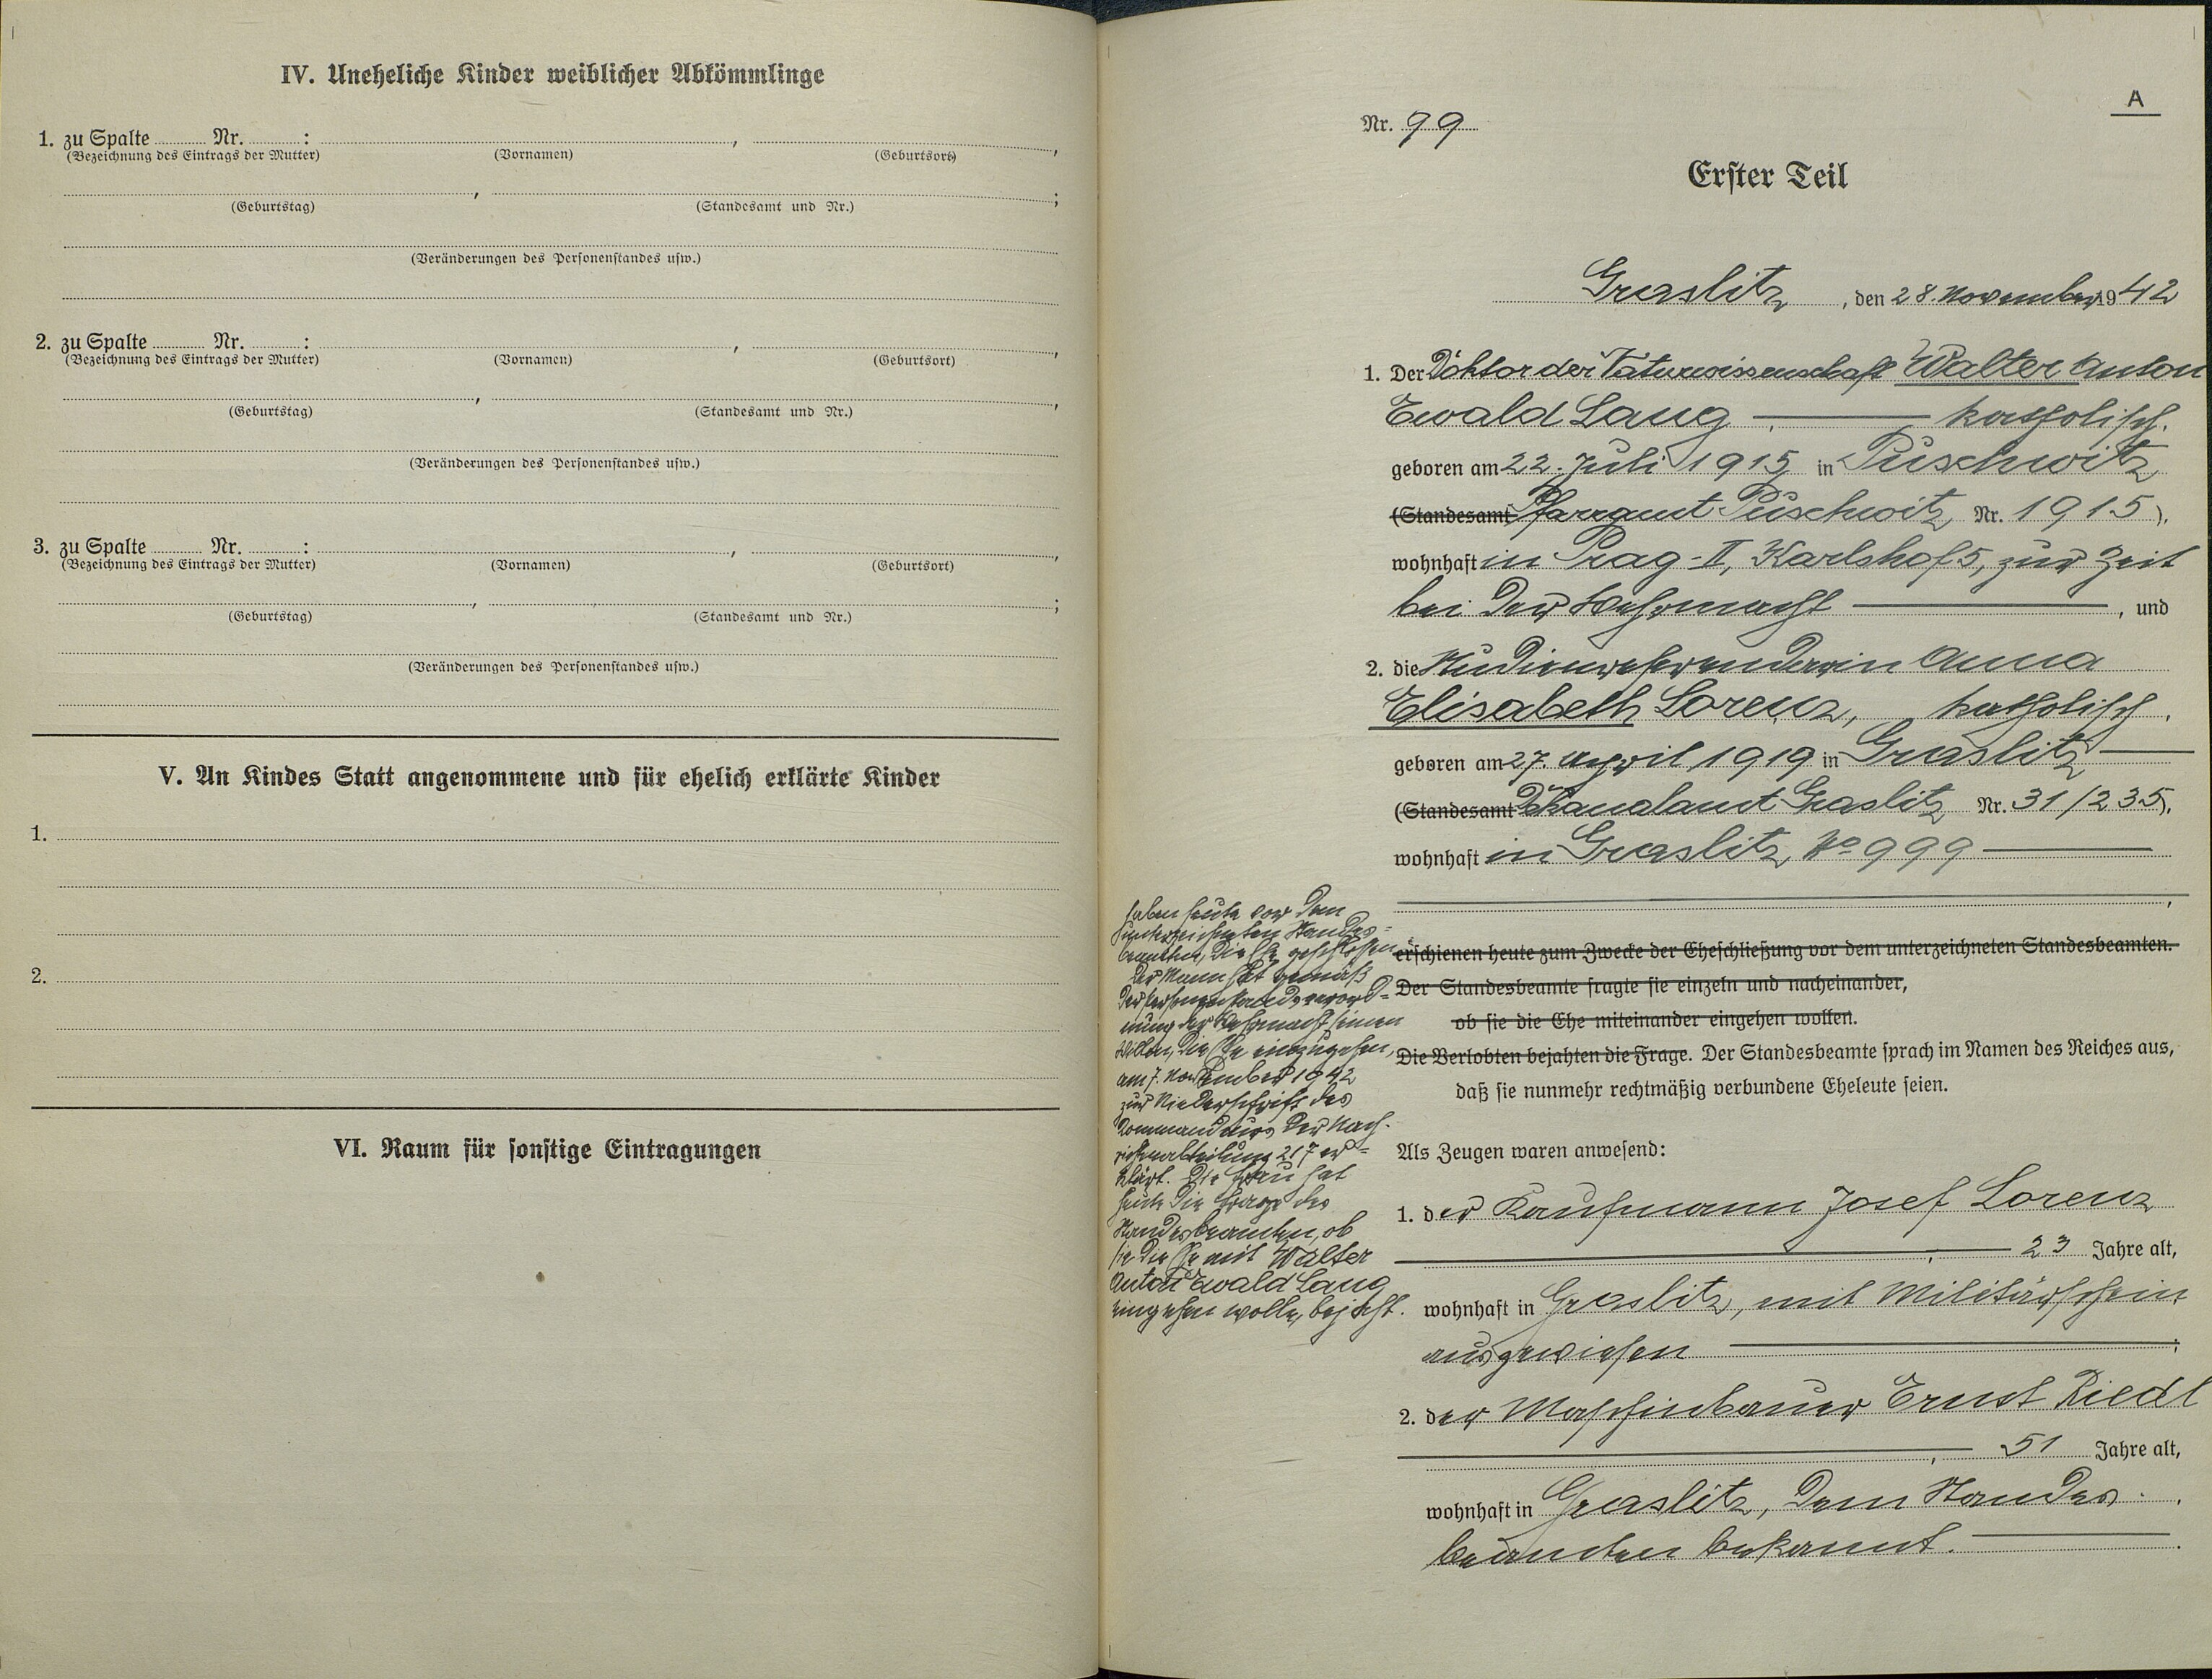 IV. Uneheliche Kinder weiblicher Abkömmlinge
1. zu Spalte ........ Nr. ........ : ........ , ........ ,
(Bezeichnung des Eintrags der Mutter) (Vornamen) (Geburtsort)
........ , ........ ;
(Geburtstag) (Standesamt und Nr.)
(Veränderungen des Personenstandes usw.)
2. zu Spalte ........ Nr. ........ : ........ , ........ ,
(Bezeichnung des Eintrags der Mutter) (Vornamen) (Geburtsort)
........ , ........ ,
(Geburtstag) (Standesamt und Nr.)
(Veränderungen des Personenstandes usw.)
3. zu Spalte ........ Nr. ........ : ........ , ........ ,
(Bezeichnung des Eintrags der Mutter) (Vornamen) (Geburtsort)
........ , ........ ;
(Geburtstag) (Standesamt und Nr.)
(Veränderungen des Personenstandes usw.)
V. An Kindes Statt angenommene und für ehelich erklärte Kinder
1.
2.
VI. Raum für sonstige Eintragungen
A
Nr. 99
Erster Teil
Graslitz, den 28. November 1942
1. Der Doktor der Naturwissenschaft Walter Anton
Ewald Laug, katholisch.
geboren am 22. Juli 1915 in Puschwitz
(Standesamt Pfarramt Puschwitz Nr. 1915),
wohnhaft in Prag-II, Karlshof 5, zur Zeit
bei der Wehrmacht, und
2. die Studienreferendarin Anna
Elisabeth Lorenz, katholisch,
geboren am 27. April 1919 in Graslitz
(Standesamt Dekanalamt Graslitz Nr. 31/235),
wohnhaft in Graslitz No 999
,
haben heute vor dem
unterzeichneten Standes=
beamten, die Ehe geschlossen.
Der Mann hat gemäß
der Personenstandsverord=
nung der Wehrmacht seinen
Willen, die Ehe einzugehen,
am 7. November 1942
zur Niederschrift des
Kommandeurs der Nach-
richtenabteilung 217 er=
klärt. Die Frau hat
heute die Frage des
Standesbeamten, ob
sie die Ehe mit Walter
Anton Ewald Laug
eingehen wolle, bejaht.
erschienen heute zum Zwecke der Eheschließung vor dem unterzeichneten Standesbeamten.
Der Standesbeamte fragte sie einzeln und nacheinander,
ob sie die Ehe miteinander eingehen wollen.
Die Verlobten bejahten die Frage. Der Standesbeamte sprach im Namen des Reiches aus,
daß sie nunmehr rechtmäßig verbundene Eheleute seien.
Als Zeugen waren anwesend:
1. der Kaufmann Josef Lorenz
, 23 Jahre alt,
wohnhaft in Graslitz, mit Militärschein
ausgewiesen ;
2. der Maschinbauer Ernst Riedl
, 51 Jahre alt,
wohnhaft in Graslitz, dem Standes-
beamten bekannt.